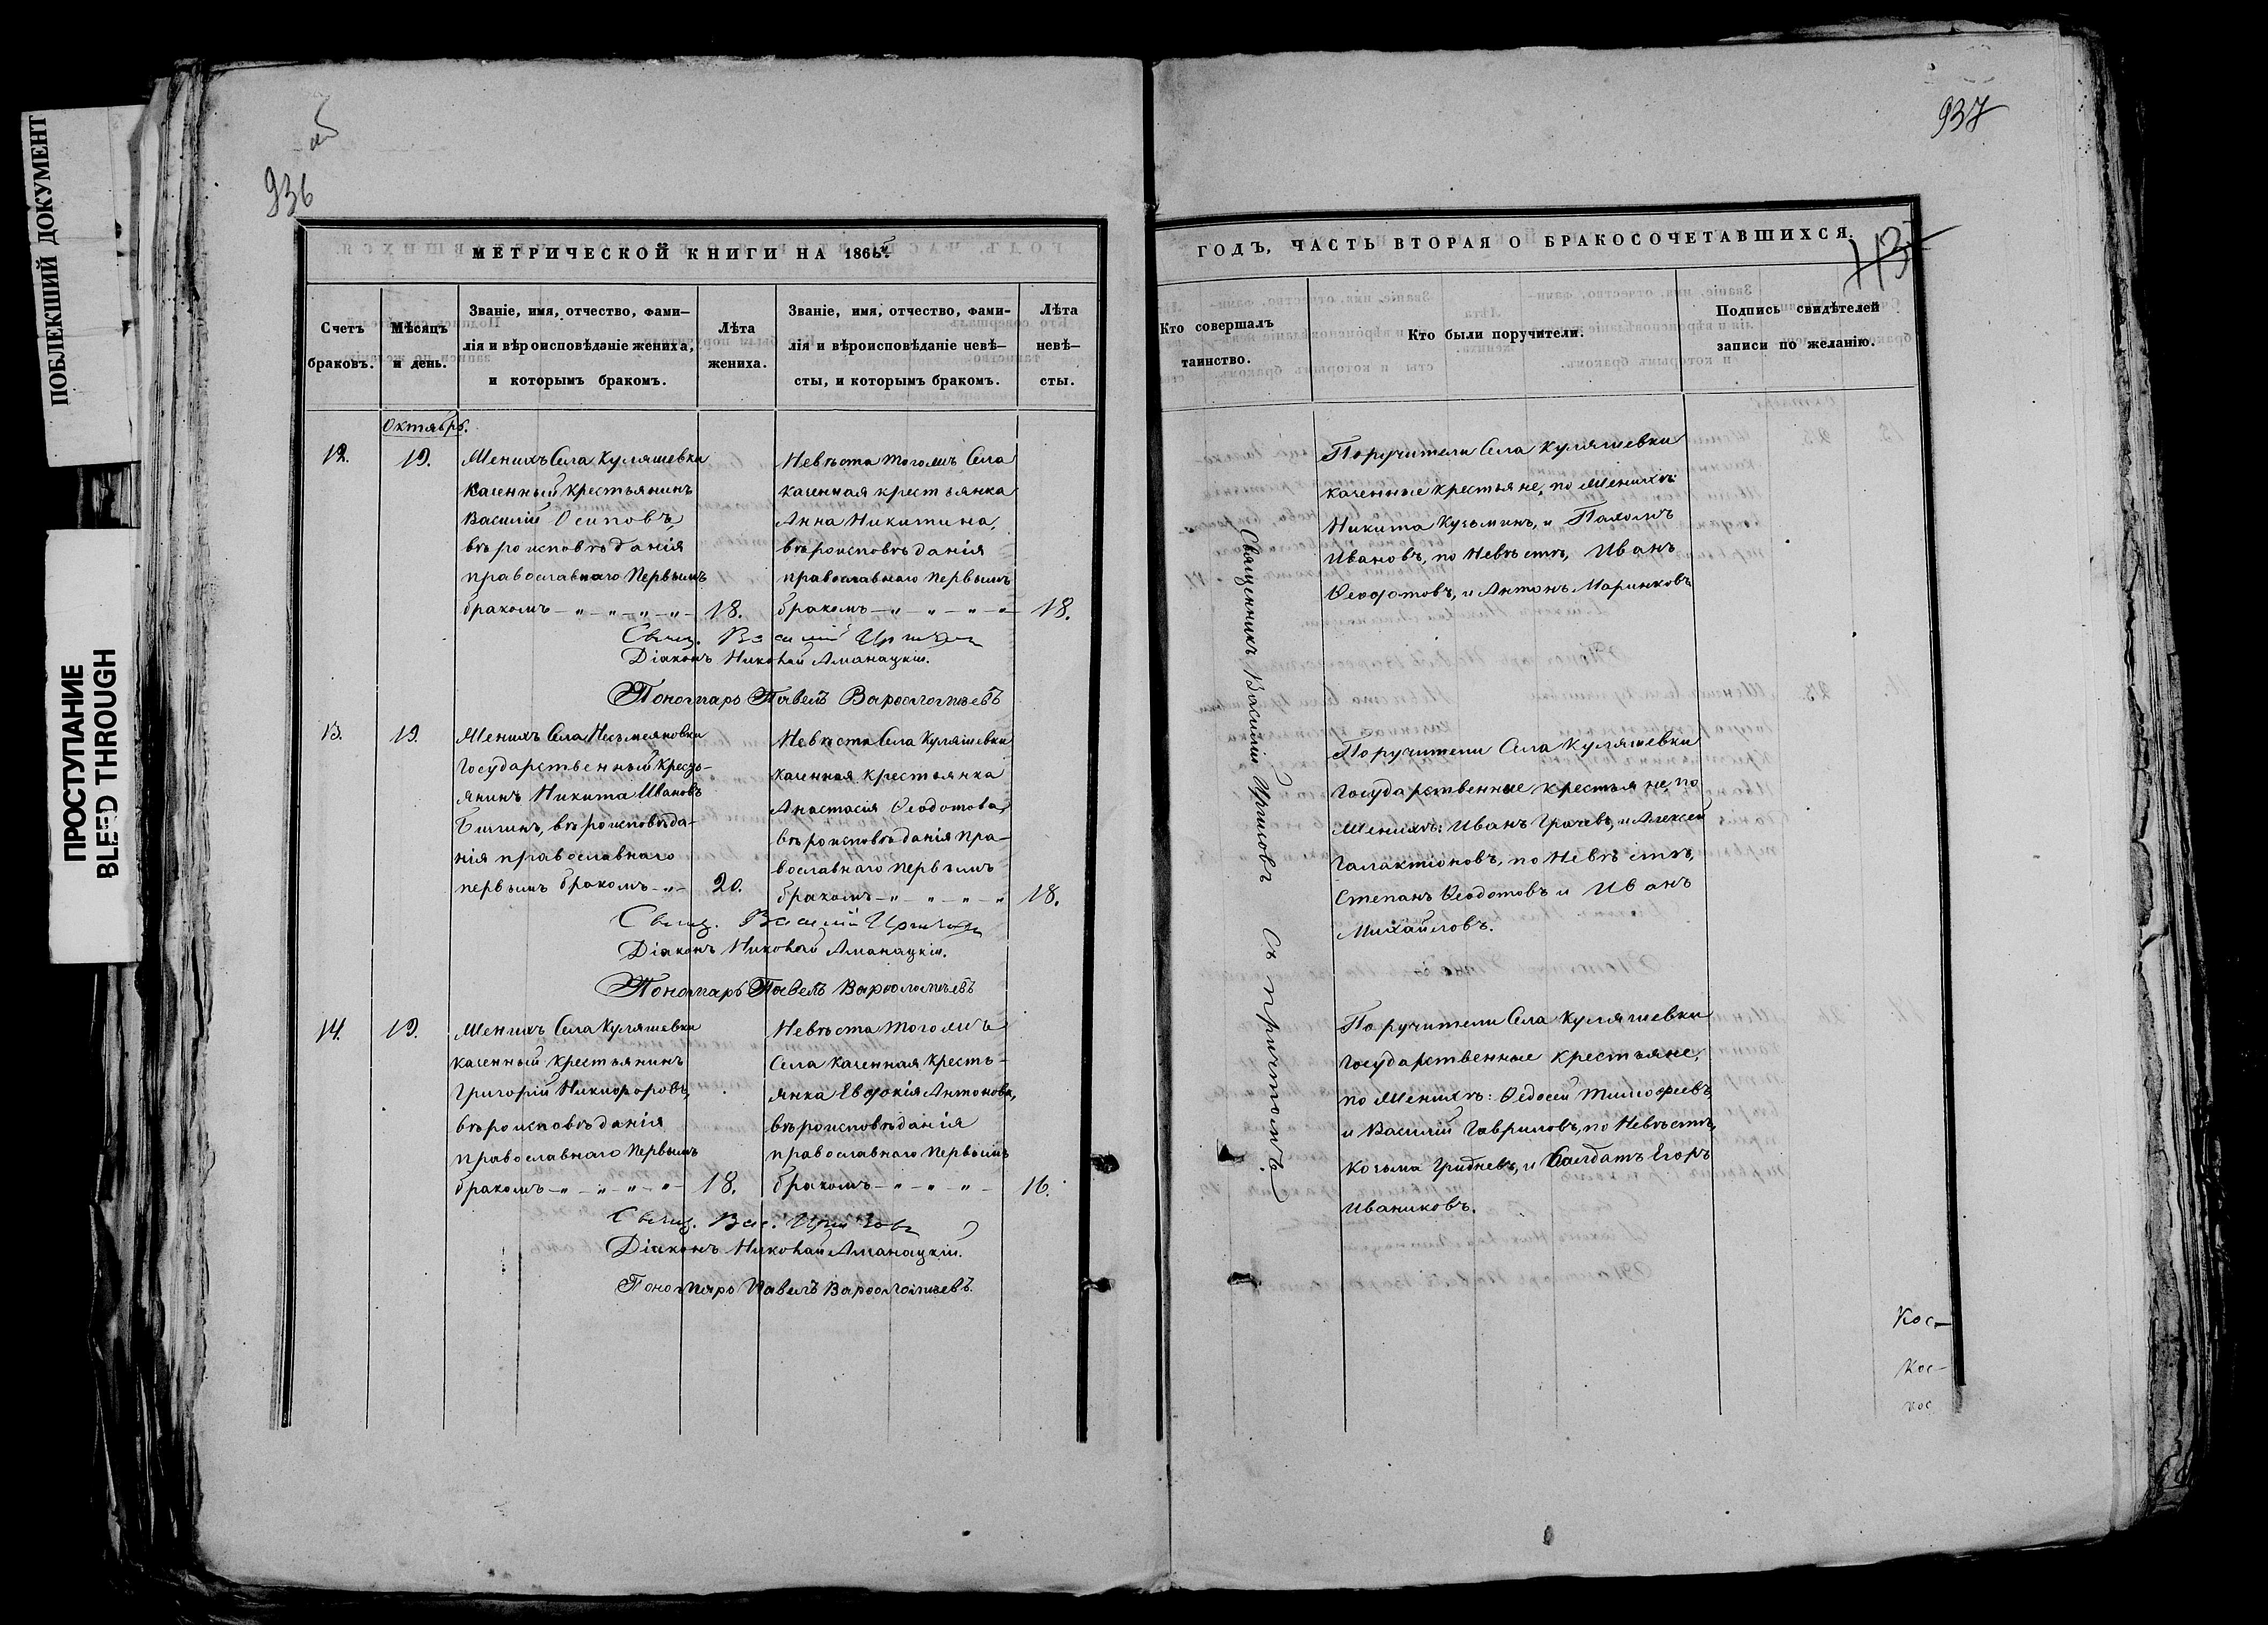 ПОБЛЕКШИЙ ДОКУМЕНТ
ПРОСТУПАНИЕ
BLEED THROUGH
936
937
МЕТРИЧЕСКОЙ КНИГИ НА 186
Счетъ
браковъ.
Мѣсяцъ
и день.
Званіе, имя, отчество, фами-
лія и вѣроисповѣданіе жениха,
и которымъ бракомъ.
Лѣта
жениха.
Званіе, имя, отчество, фами-
лія и вѣроисповѣданіе невѣ-
сты, и которымъ бракомъ.
Лѣта
невѣ-
сты.
Октябрь.
12.
19.
Женихъ Села Куляшевки
казенный крестьянинъ
Василій Осиповъ,
вѣроисповѣданія
православнаго первымъ
бракомъ - „ - „ - „ - „ -
18.
Невѣста тогожъ Села
казенная крестьянка
Анна Никитина,
вѣроисповѣданія
православнаго первымъ
бракомъ - „ - „ - „ - „
18.
Свящ. Василій
Діаконъ Николай Аманацкій.
Пономарь Павелъ Варѳоломѣевъ
13.
19.
Женихъ Села Несмеяновки
Государственный кресть-
янинъ Никита Ивановъ
вѣроисповѣда-
нія православнаго
первымъ бракомъ - „ -
20.
Невѣста Села Куляшевки
казенная крестьянка
Анастасія Ѳеодотова,
вѣроисповѣданія пра-
вославнаго первымъ
бракомъ - „ - „ - „ - „
18.
Свящ. Василій
Діаконъ Николай Аманацкій.
Пономарь Павелъ Варѳоломѣевъ
14.
19.
Женихъ Села Куляшевки
казенный крестьянинъ
Григорій Никифоровъ,
вѣроисповѣданія
православнаго первымъ
бракомъ - „ - „ - „ - „ -
18.
Невѣста тогожъ
Села казенная кресть-
янка Евдокія Антонова,
вѣроисповѣданія
православнаго первымъ
бракомъ - „ - „ - „ -
16.
Свящ. Вас.
Діаконъ Николай Аманацкій.
Пономарь Павелъ Варѳоломѣевъ.
ГОДЪ, ЧАСТЬ ВТОРАЯ О БРАКОСОЧЕТАВШИХСЯ.
Кто совершалъ
таинство.
Кто были поручители.
Подпись свидѣтелей
записи по желанію.
Священникъ Василій съ причтомъ.
Поручители Села Куляшевки
казенные крестьяне, по Женихѣ
Никита Кузьминъ, и Пахомъ
Ивановъ, по Невѣстѣ, Иванъ
Ѳеодотовъ, и Антонъ Маринковъ
Поручители Села Куляшевки
Государственные крестьяне, по
Женихѣ: Иванъ Грачевъ, и Алексей
Галактіоновъ, по Невѣстѣ,
Степанъ Ѳеодотовъ и Иванъ
Михайловъ.
Поручители Села Куляшевки
Государственные крестьяне,
по Женихѣ: Ѳедосей Тимофеевъ,
и Василій Гавриловъ, по Невѣстѣ,
Козьма Гридневъ, и Солдатъ Егоръ
Иваниковъ.
Кос-
Кос-
кос